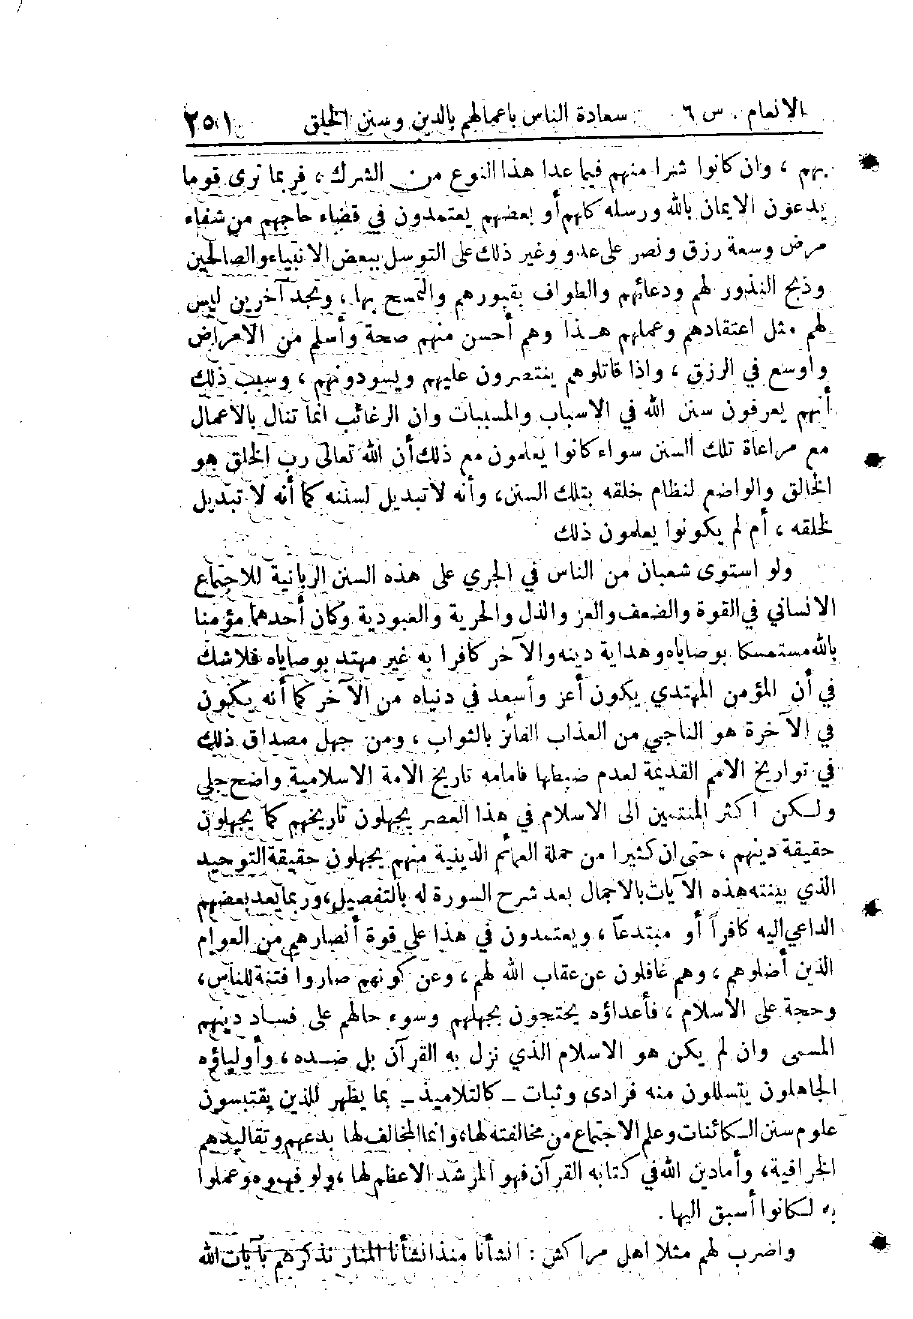 الانعام . س ٦ سعادة الناس باعمالهم بالدين وسنن الخلق ٢٥١
بهم ، وان كانوا شرا منهم فيما عدا هذا النوع من الشرك ، فربما نرى قوما
يدعون الايمان بالله ورسله كلهم أو بعضهم يعتمدون في قضاء حاجهم من شفاء
مرض وسعة رزق ونصر على عدو وغير ذلك على التوسل ببعض الانبياء والصالحين
وذبح النذور لهم ودعائهم والطواف بقبورهم والتمسح بها ، ونجد آخرين ليس
لهم مثل اعتقادهم وعملهم هـذا وهم أحسن منهم صحة وأسلم من الامراض
واوسع في الرزق ، واذا قاتلوهم ينتصرون عليهم ويسودونهم ، وسبب ذلك
أنهم يعرفون سنن الله في الاسباب والمسببات وان الرغائب انما تنال بالاعمال
مع مراعاة تلك السنن سواء كانوا يعلمون مع ذلك أن الله تعالى رب الخلق هو
الخالق والواضع لنظام خلقه بتلك السنن ، وأنه لا تبديل لسننه كما أنه لا تبديل
لخلقه ، أم لم يكونوا يعلمون ذلك
ولو استوى شعبان من الناس في الجري على هذه السنن الربانية للاجتماع
الانساني في القوة والضعف والعز والذل والحرية والعبودية وكان أحدهما مؤمنا
بالله مستمسكا بوصاياه وهداية دينه والآخر كافرا به غير مهتد بوصاياه فلا شك
في أن المؤمن المهتدي يكون أعز وأسعد في دنياه من الآخر كما أنه يكون
في الآخرة هو الناجي من العذاب الفائز بالثواب ، ومن جهل مصداق ذلك
في تواريخ الامم القديمة لعدم ضبطها فامامه تاريخ الامة الاسلامية واضح جلي
ولـكن اكثر المنتمين الى الاسلام في هذا العصر يجهلون تاريخهم كما يجهلون
حقيقة دينهم ، حتى ان كثيرا من حملة العمائم الدينية منهم يجهلون حقيقة التوحيد
الذي بينته هذه الآيات بالاجمال بعد شرح السورة له بالتفصيل ، وربما يعد بعضهم
الداعي اليه كافراً أو مبتدعاً ، ويعتمدون في هذا على قوة أنصارهم من العوام
الذين أضلوهم ، وهم غافلون عن عقاب الله لهم ، وعن كونهم صاروا فتنة للناس ،
وحجة على الاسلام ، فأعداؤه يحتجون بجهلهم وسوء حالهم على فساد دينهم
المسمى وان لم يكن هو الاسلام الذي نزل به القرآن بل ضـده ، وأولياؤه
الجاهلون يتسللون منه فرادى وثبات ـ كالتلاميذ ـ بما يظهر للذين يقتبسون
علوم سنن الـكائنات وعلم الاجتماع من مخالفته لها ، وانما المخالف لها بدعهم وتقاليدهم
الخرافية ، وأما دين الله في كتابه القرآن فهو المرشد الاعظم لها ، ولو فهموه وعملوا
به لـكانوا أسبق اليها .
واضرب لهم مثلا اهل مراكش : اننا منذ انشأنا المنار نذكرهم بآيات الله